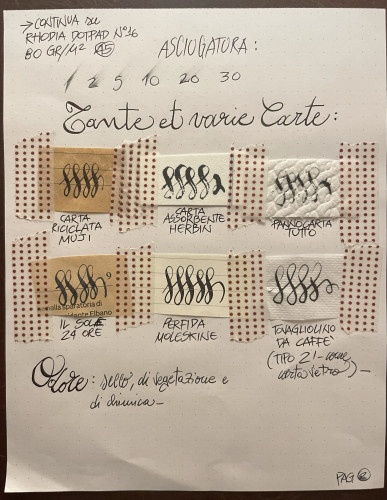 → CONTINUA SU
RHODIA DOTPAD Nº16
80 GR/M² 15
ASCIUGATURA:
1 2 5 10 20 30
Tante et varie Carte:
CARTA
RICICLATA
MUJI
CARTA
ASSORBENTE
HERBIN
PANNOCARTA
TUTTO
lla sparatoria di
dante Elbano
IL SOLE
24 ORE
PERFIDA
MOLESKINE
TOVAGLIOLINO
DA CAFFE'
(TIPO 2! - come
carta vetro) -
Odore: di vegetazione e
di chimica -
PAG 2